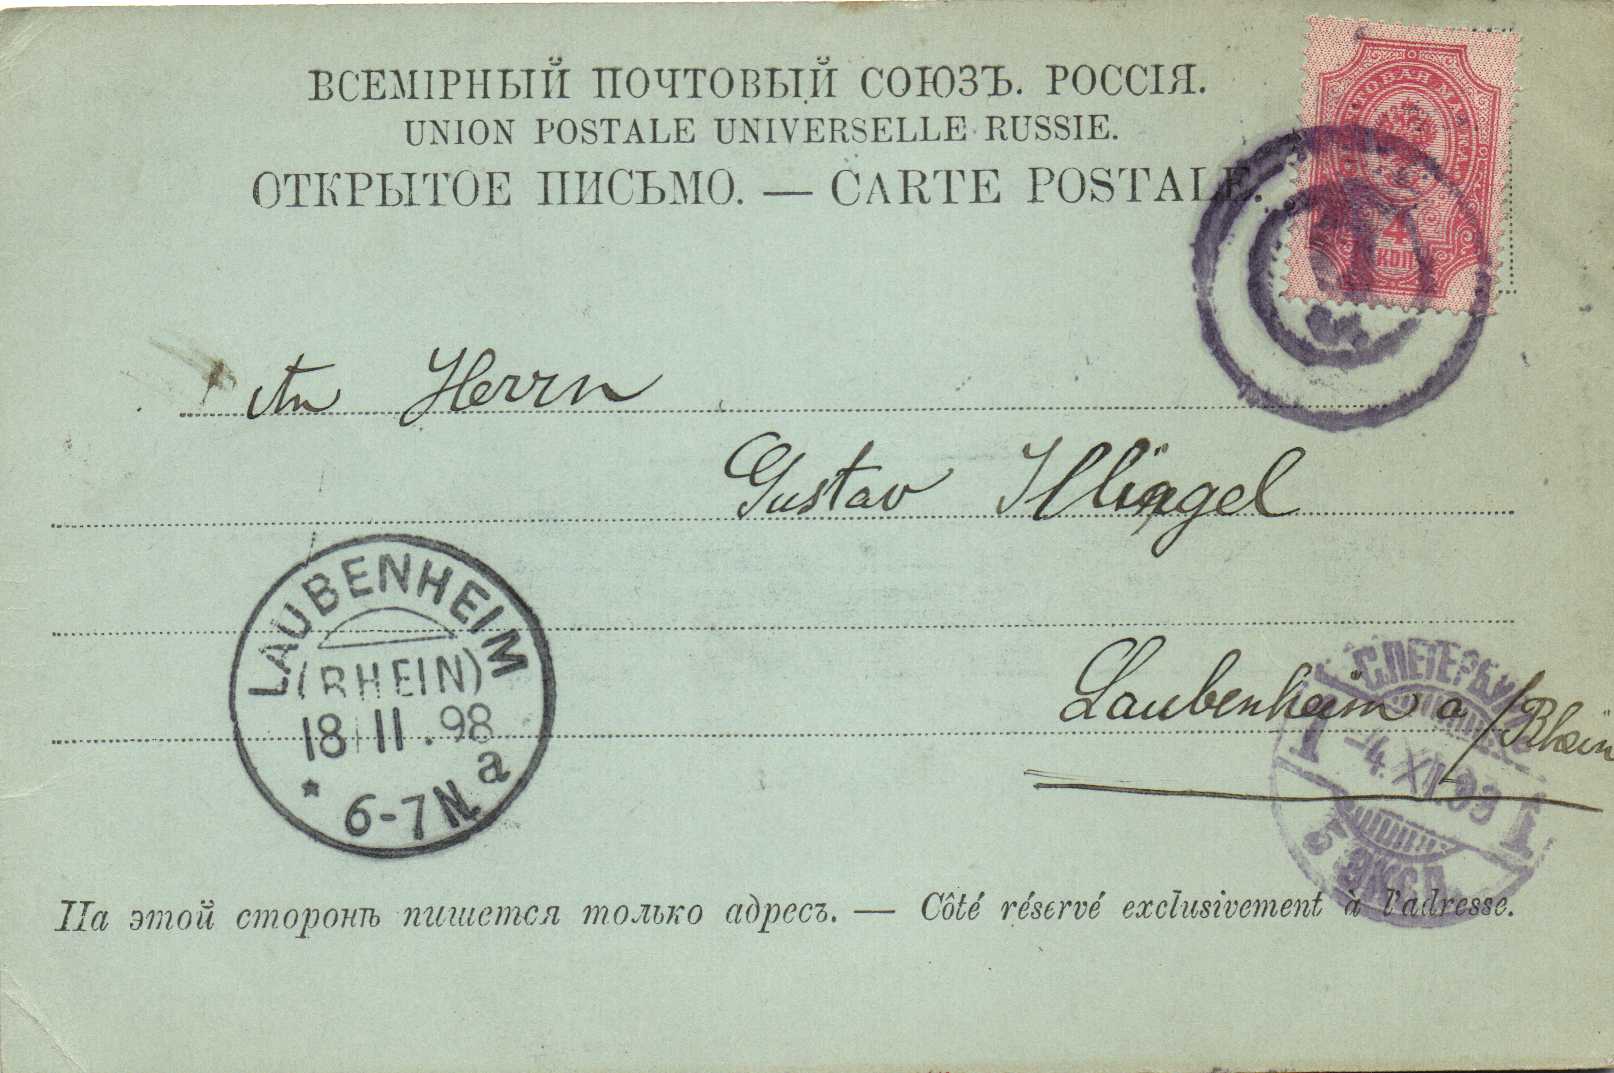 ВСЕМІРНЫЙ ПОЧТОВЫЙ СОЮЗЪ. РОССІЯ.
UNION POSTALE UNIVERSELLE RUSSIE.
ОТКРЫТОЕ ПИСЬМО. — CARTE POSTALE.
МАРКА
4
КОП
1
An Herrn
Gustav Illingel
LAUBENHEIM
(RHEIN)
18 11 . 98
* 6-7 N. a
Laubenheim a/Rhein
С.ПЕТЕРБУ
1 -4.XI.99 1
5 ЭКСП.
На этой сторонѣ пишется только адресъ. — Côté réservé exclusivement à l'adresse.